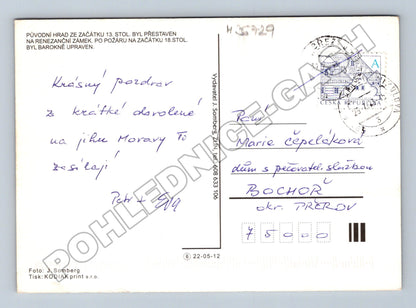 PŮVODNÍ HRAD ZE ZAČÁTKU 13. STOL. BYL PŘESTAVEN
NA RENEZANČNÍ ZÁMEK. PO POŽÁRU NA ZAČÁTKU 18.STOL.
BYL BAROKNĚ UPRAVEN.
Krásný pozdrav
ze krátké dovolené
na jihu Moravy Ti
zasílají
Petr +
Foto: J. Somberg
Tisk: KODIAK print s.r.o.
6 22-05-12
Vydavatel J. Somberg, Zlín, tel. 608 633 106
A
ČESKÁ REPUBLIKA
Paní
Marie Čepeláková
dům s pečovatel. službou
BOCHOŘ
okr. PŘEROV
75000
POHLEDNICE-GASH